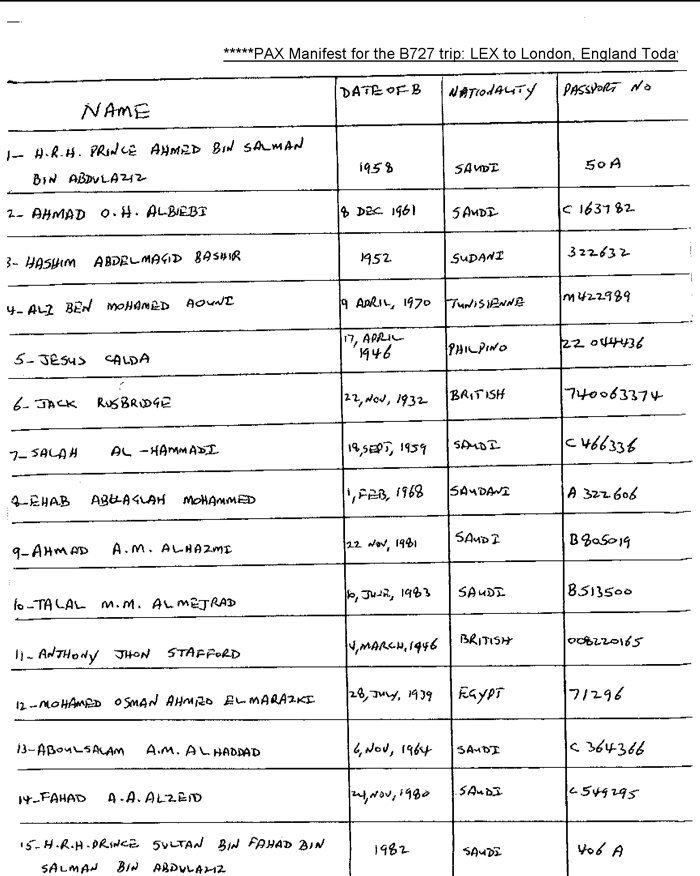 *****PAX Manifest for the B727 trip: LEX to London, England Toda
NAME DATE OF B NATIONALITY PASSPORT NO
1- H.R.H. PRINCE AHMED BIN SALMAN
BIN ABDULAZIZ 1958 SAUDI 50A
2- AHMAD O.H. ALBIEBI 8 DEC 1961 SAUDI C 163782
3- HASHIM ABDELMAGID BASHIR 1952 SUDANI 322632
4- ALI BEN MOHAMED AOUNI 9 APRIL, 1970 TUNISIENNE M422989
17, APRIL
5- JESUS CALDA 1946 PHILPINO 22 044436
6- JACK RUSBRIDGE 22, NOV, 1932 BRITISH 740063374
7- SALAH AL-HAMMADI SEPT, 1959 SAUDI C 466336
8- EHAB MOHAMMED 1, FEB, 1968 SAUDANI A 322606
9- AHMAD A.M. ALHAZMI 22 NOV, 1981 SAUDI B805019
10- TALAL M.M. ALMEJRAD JUNE, 1983 SAUDI B513500
11- ANTHONY JHON STAFFORD 4, MARCH, 1946 BRITISH 008220165
12- MOHAMED OSMAN AHMED ELMARAZKI 28, JULY, 1939 EGYPT 71296
13- ABOULSALAM A.M. ALHADDAD 6, NOV, 1964 SAUDI C 364366
14- FAHAD A.A. ALZEID 24, NOV, 1980 SAUDI C549295
15- H.R.H. PRINCE SULTAN BIN FAHAD BIN
SALMAN BIN ABDULAZIZ 1982 SAUDI 406 A